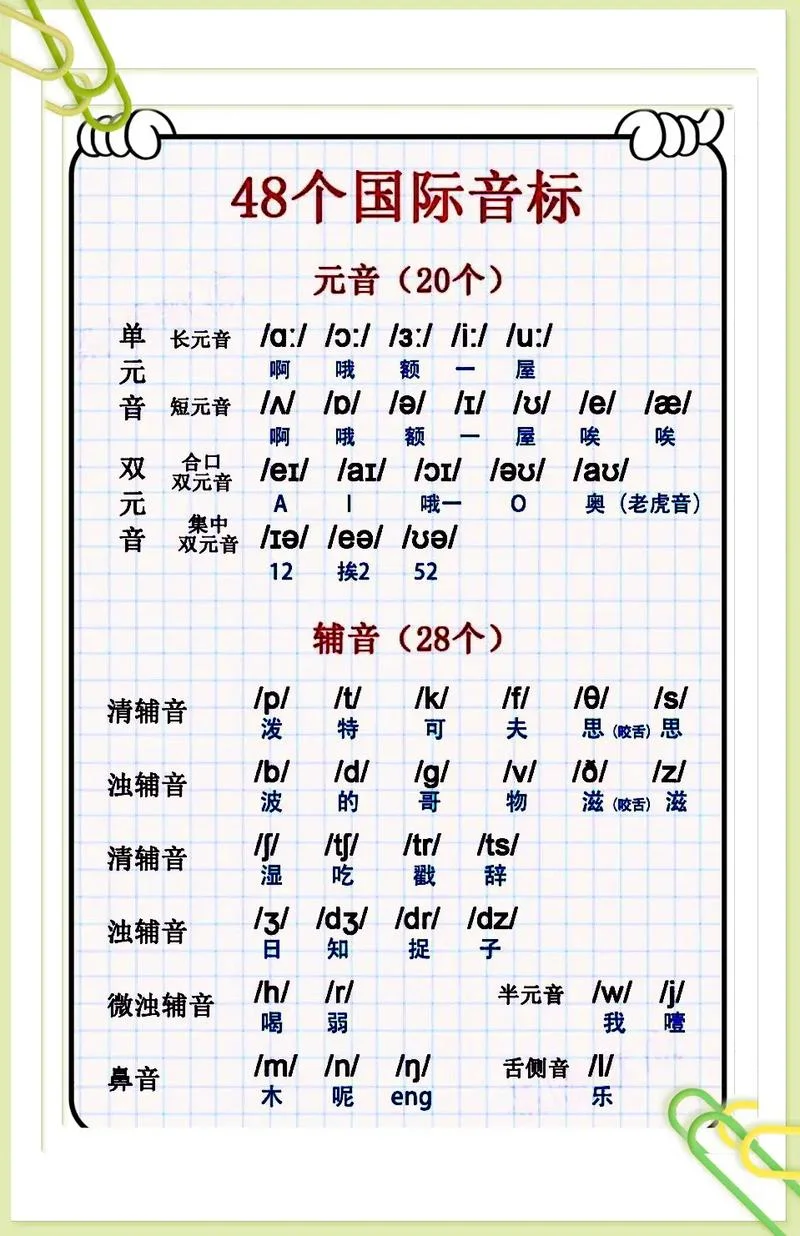 48个国际音标
元音（20个）
单元音
长元音 /ɑː/ /ɔː/ /ɜː/ /iː/ /uː/
啊 哦 额 一 屋
短元音 /ʌ/ /ɒ/ /ə/ /ɪ/ /ʊ/ /e/ /æ/
啊 哦 额 一 屋 唉 唉
双元音
合口双元音 /eɪ/ /aɪ/ /ɔɪ/ /əʊ/ /aʊ/
A I 哦一 O 奥（老虎音）
集中双元音 /ɪə/ /eə/ /ʊə/
12 挨2 52
辅音（28个）
清辅音 /p/ /t/ /k/ /f/ /θ/ /s/
泼 特 可 夫 思（咬舌） 思
浊辅音 /b/ /d/ /g/ /v/ /ð/ /z/
波 的 哥 物 滋（咬舌） 滋
清辅音 /ʃ/ /tʃ/ /tr/ /ts/
湿 吃 戳 辞
浊辅音 /ʒ/ /dʒ/ /dr/ /dz/
日 知 捉 子
微浊辅音 /h/ /r/ 半元音 /w/ /j/
喝 弱 我 噎
鼻音 /m/ /n/ /ŋ/ 舌侧音 /l/
木 呢 eng 乐